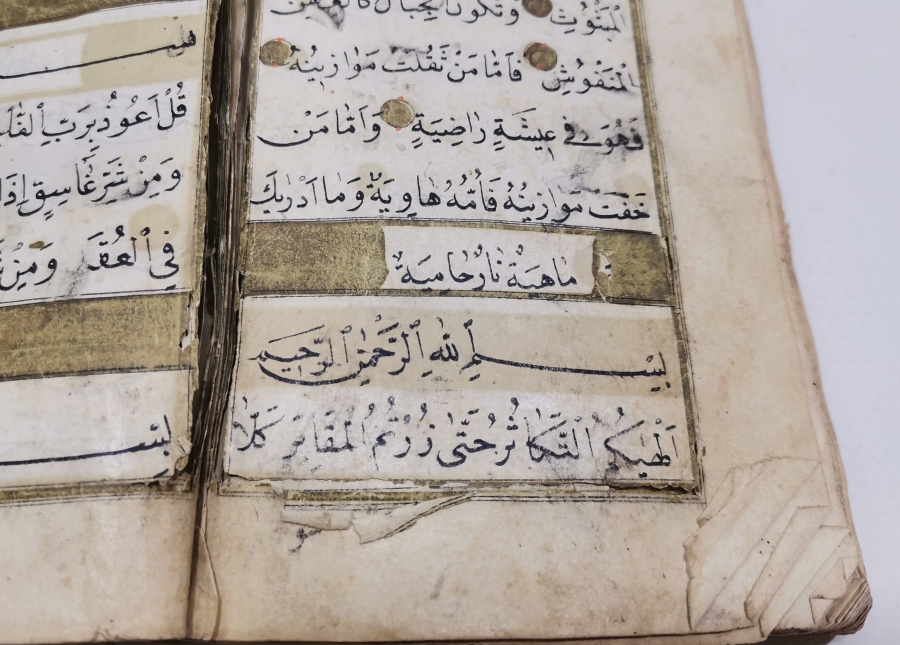 الْمَنْفُوشِ فَاَمَّا مَنْ ثَقُلَتْ مَوَازٖينُهُ
فَهُوَ فٖى عٖيشَةٍ رَاضِيَةٍ وَاَمَّا مَنْ
خَفَّتْ مَوَازٖينُهُ فَاُمُّهُ هَاوِيَةٌ وَمَا اَدْرٰيكَ
مَاهِيَهْ نَارٌ حَامِيَةٌ
بِسْمِ اللّٰهِ الرَّحْمٰنِ الرَّحٖيمِ
اَلْهٰيكُمُ التَّكَاثُرُ حَتّٰى زُرْتُمُ الْمَقَابِرَ كَلَّا
قُلْ اَعُوذُ بِرَبِّ الْفَلَقِ
وَمِنْ شَرِّ غَاسِقٍ اِذَا
فِي الْعُقَدِ وَمِنْ
بِسْـ